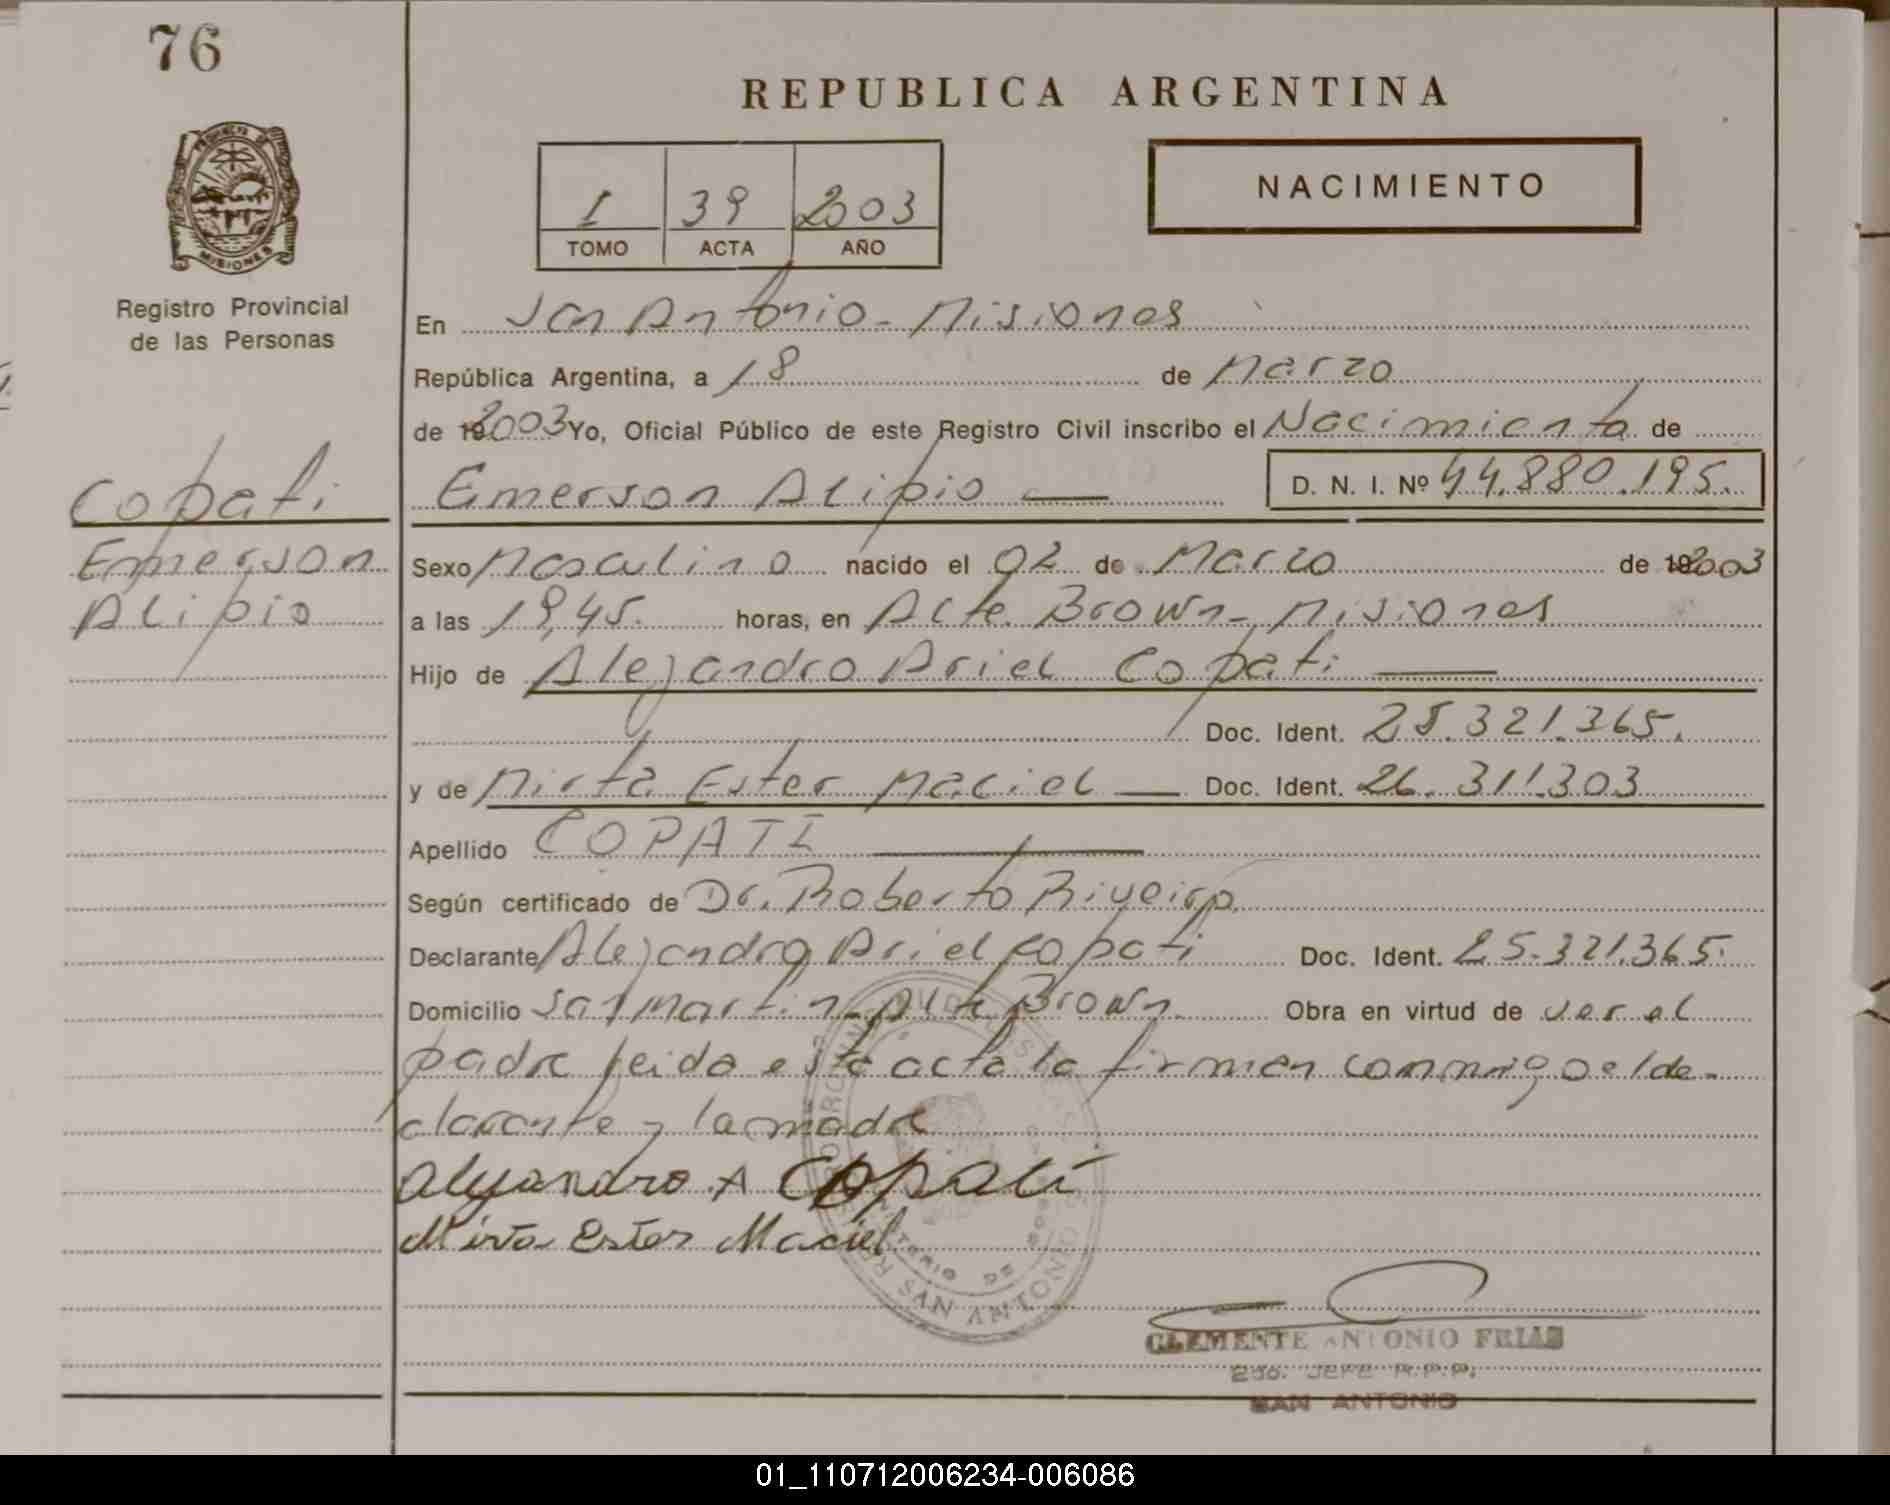 76
REPUBLICA ARGENTINA
PROVINCIA DE
MISIONES
I 39 2003
TOMO ACTA AÑO
NACIMIENTO
Registro Provincial
de las Personas
En San Antonio - Misiones
República Argentina, a 18 de Marzo
de 192003 Yo, Oficial Público de este Registro Civil inscribo el Nacimiento de
Emerson Alipio — D. N. I. Nº 44.880.195.
Copati
Emerson
Alipio
Sexo Masculino nacido el 02 de Marzo de 192003
a las 19,45. horas, en Alte. Brown - Misiones
Hijo de Alejandro Ariel Copati —
Doc. Ident. 25.321.365.
y de Mirta Ester Maciel — Doc. Ident. 26.311.303
Apellido COPATI —
Según certificado de Dr. Roberto Riveiro
Declarante Alejandro Ariel Copati Doc. Ident. 25.321.365.
Domicilio San Martin - Alte Brown. Obra en virtud de ser el
padre leida esta acta la firman conmigo el de-
clarante y la madre
Alejandro A Copati
Mirta Ester Maciel
SAN ANTONIO
CLEMENTE ANTONIO FRIAS
2do. JEFE R.P.P.
SAN ANTONIO
01_110712006234-006086